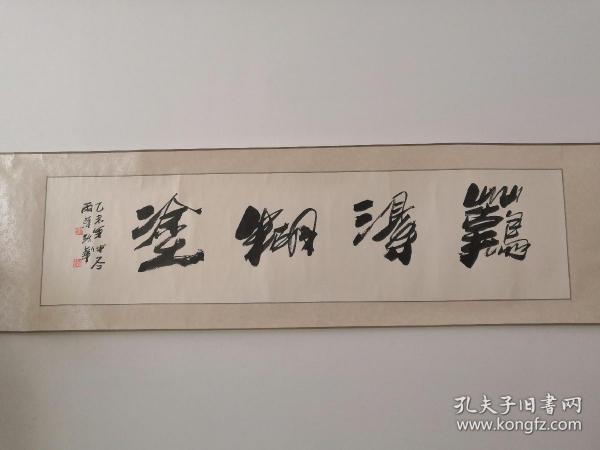 難得糊塗
乙未年仲冬
孔夫子旧书网
www.kongfz.com